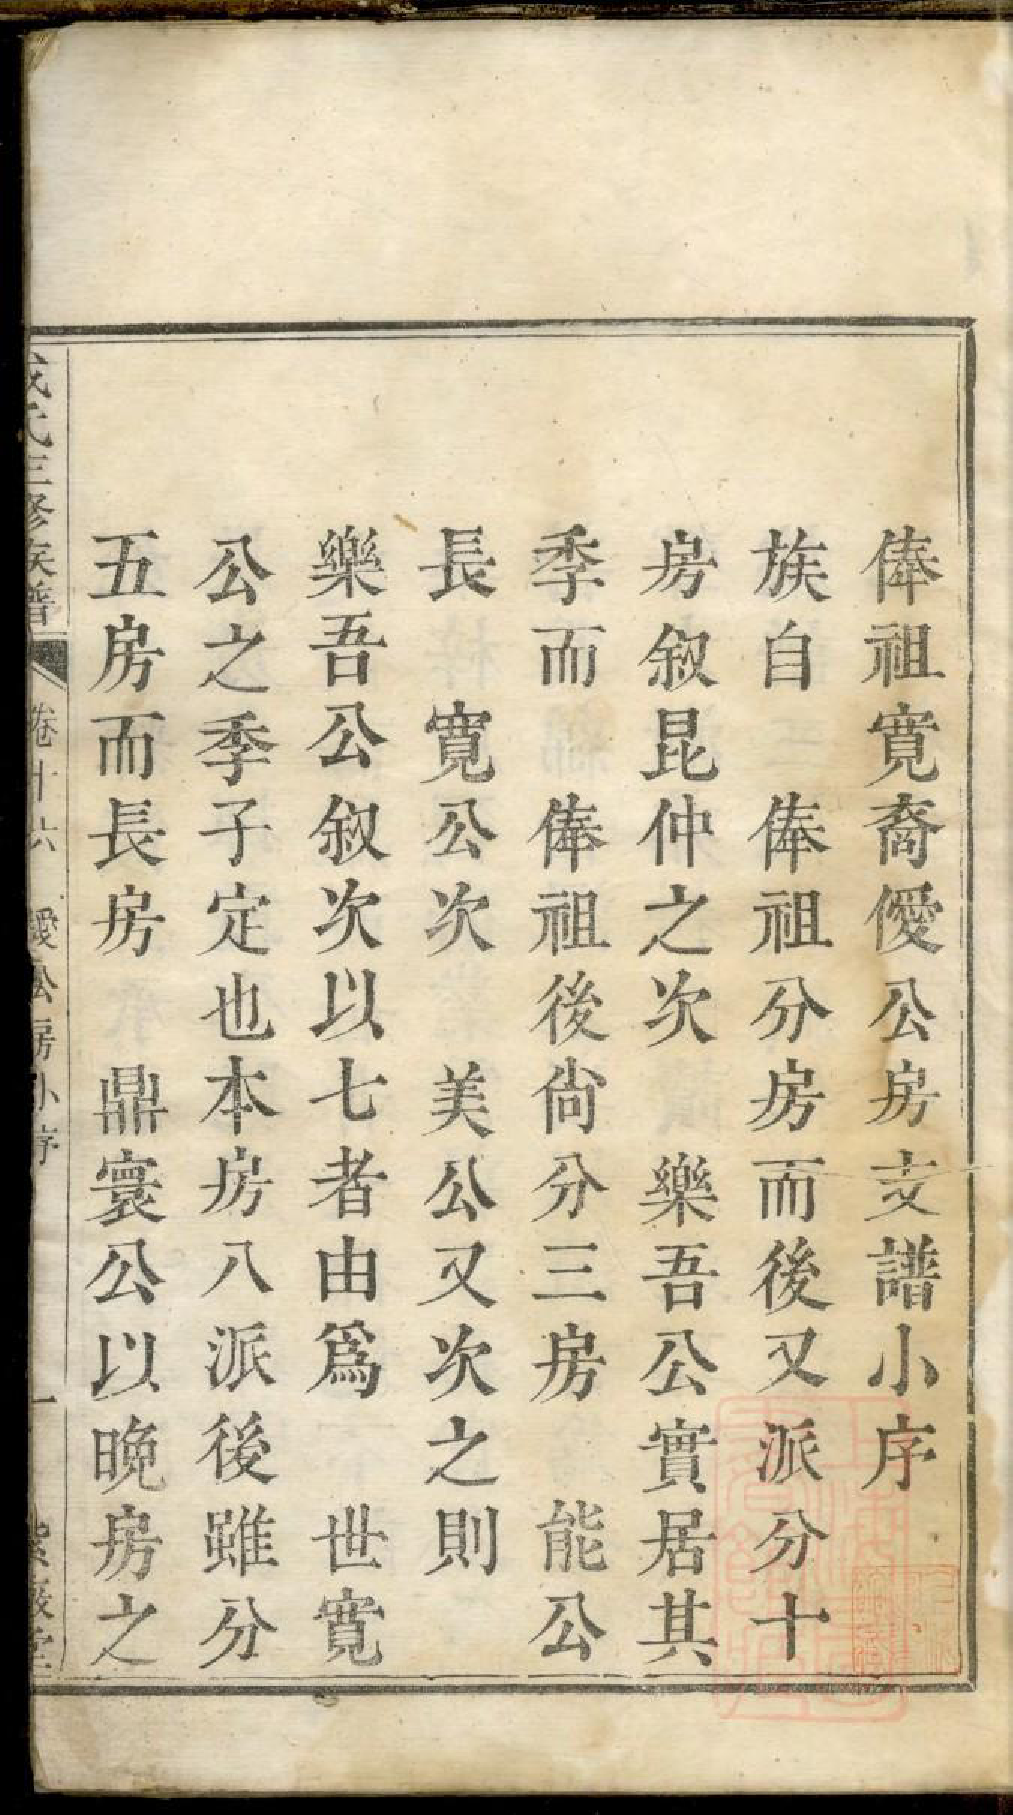 俸祖寬裔僾公房支譜小序
族自　俸祖分房而後又　派分十
房叙昆仲之次　樂吾公實居其
季而　俸祖後尙分三房　能公
長　寬公次　美公又次之則
樂吾公叙次以七者由爲　世寬
公之季子定也本房八派後雖分
五房而長房　鼎寰公以晚房之
氏三修族譜　卷十六　僾公房小序　一